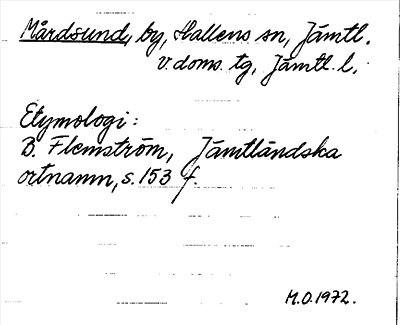 Mårdsund, by, Hallens sn, Jämtl.
v. doms. tg, Jämtl. l.
Etymologi:
B. Flemström, Jämtländska
ortnamn, s. 153 f.
M.O. 1972.